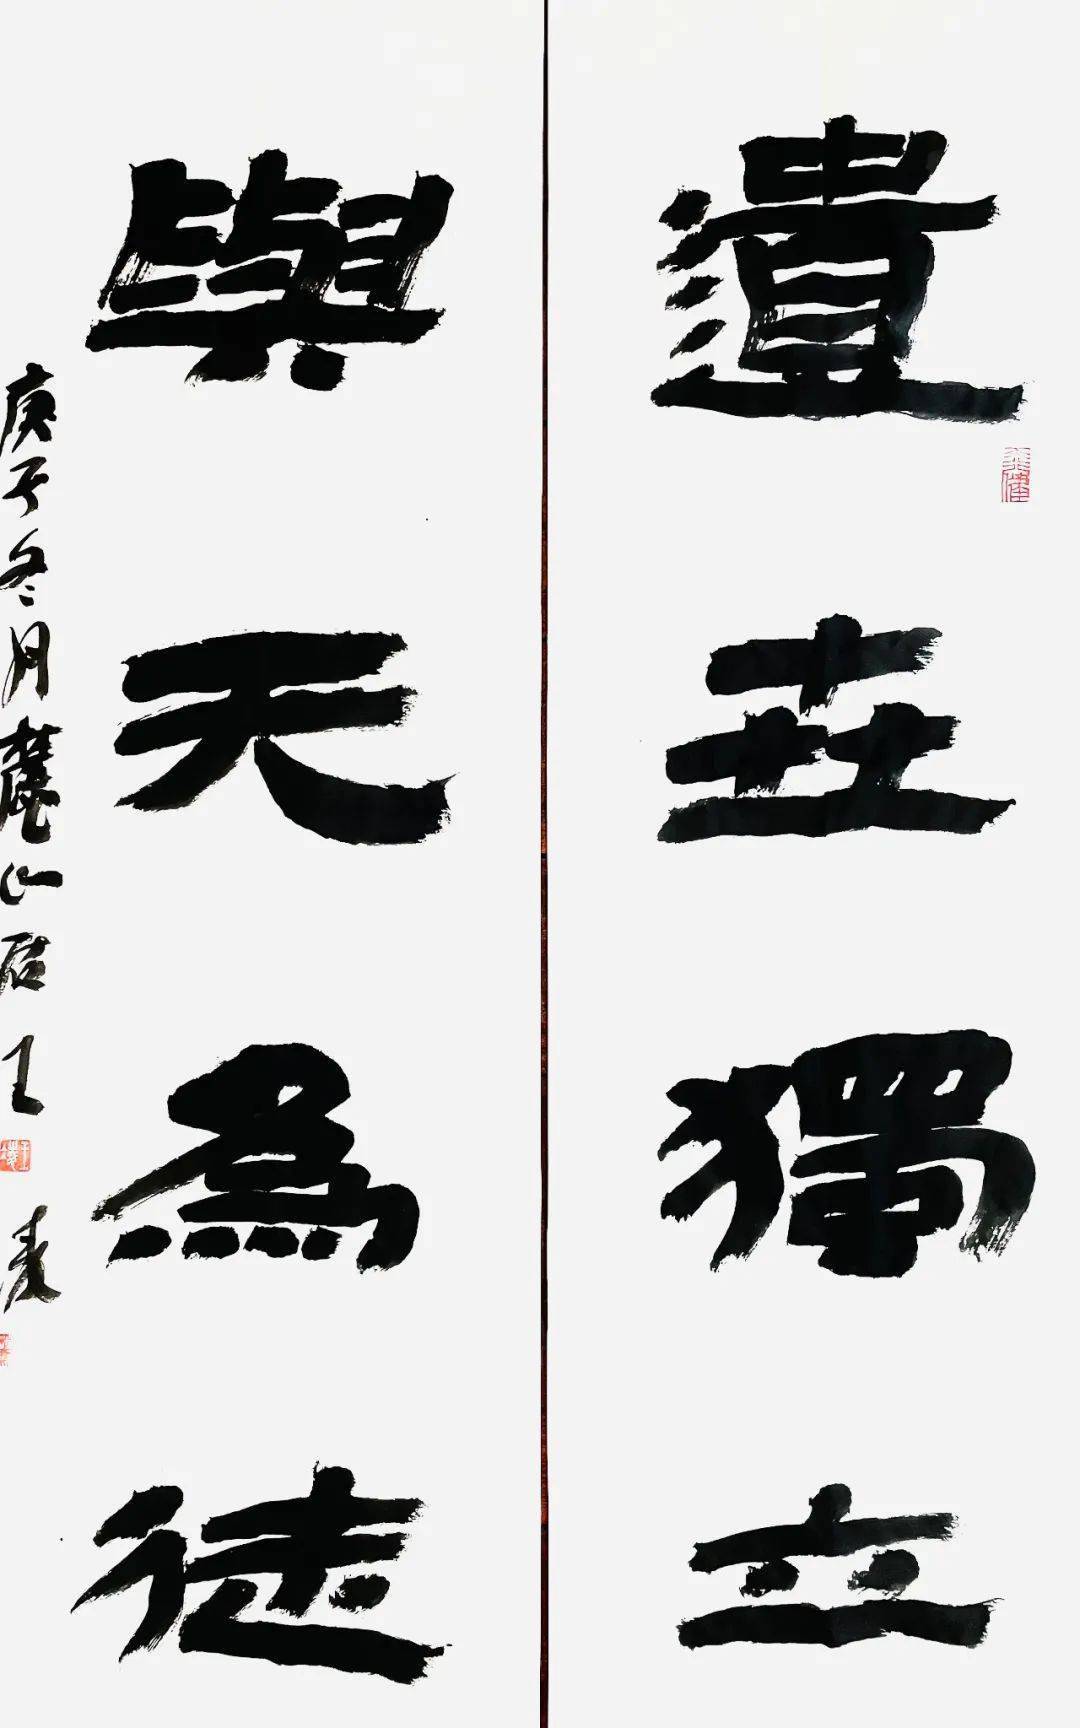 遺世獨立
與天爲徒
庚子冬月麓山居王